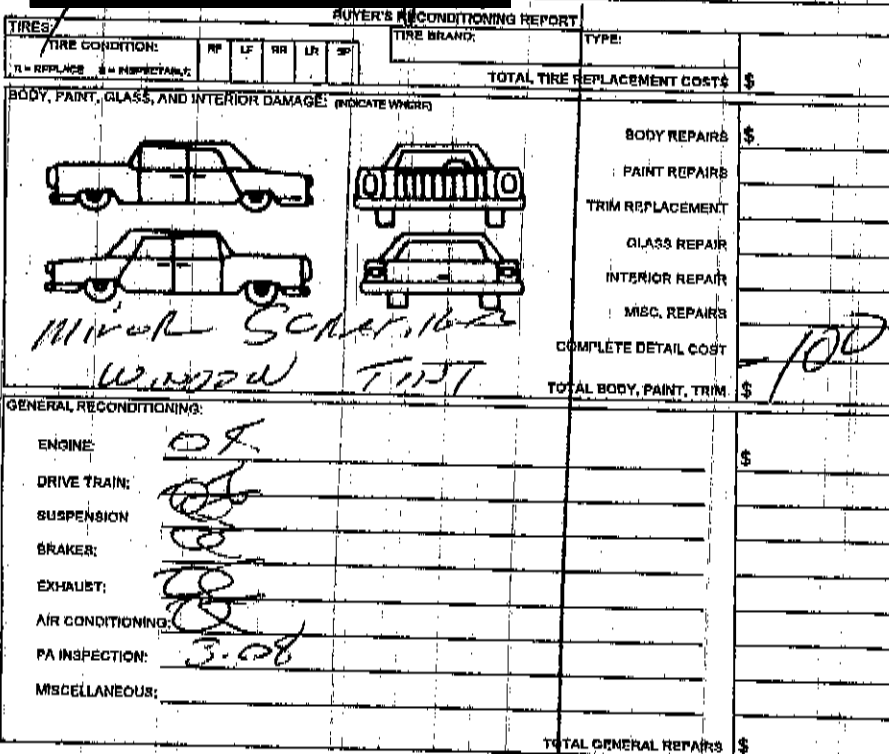 BUYER'S RECONDITIONING REPORT
TIRES:
TIRE CONDITION: RF LF RR LR SP TIRE BRAND: TYPE:
R = REPLACE
TOTAL TIRE REPLACEMENT COSTS $
BODY, PAINT, GLASS, AND INTERIOR DAMAGE: (INDICATE WHERE)
BODY REPAIRS $
PAINT REPAIRS
TRIM REPLACEMENT
GLASS REPAIR
INTERIOR REPAIR
MISC. REPAIRS
Minor
COMPLETE DETAIL COST 100
WINDOW TINT
TOTAL BODY, PAINT, TRIM $
GENERAL RECONDITIONING:
ENGINE: OK $
DRIVE TRAIN:
SUSPENSION
BRAKES:
EXHAUST:
AIR CONDITIONING:
PA INSPECTION: 3-08
MISCELLANEOUS:
TOTAL GENERAL REPAIRS $